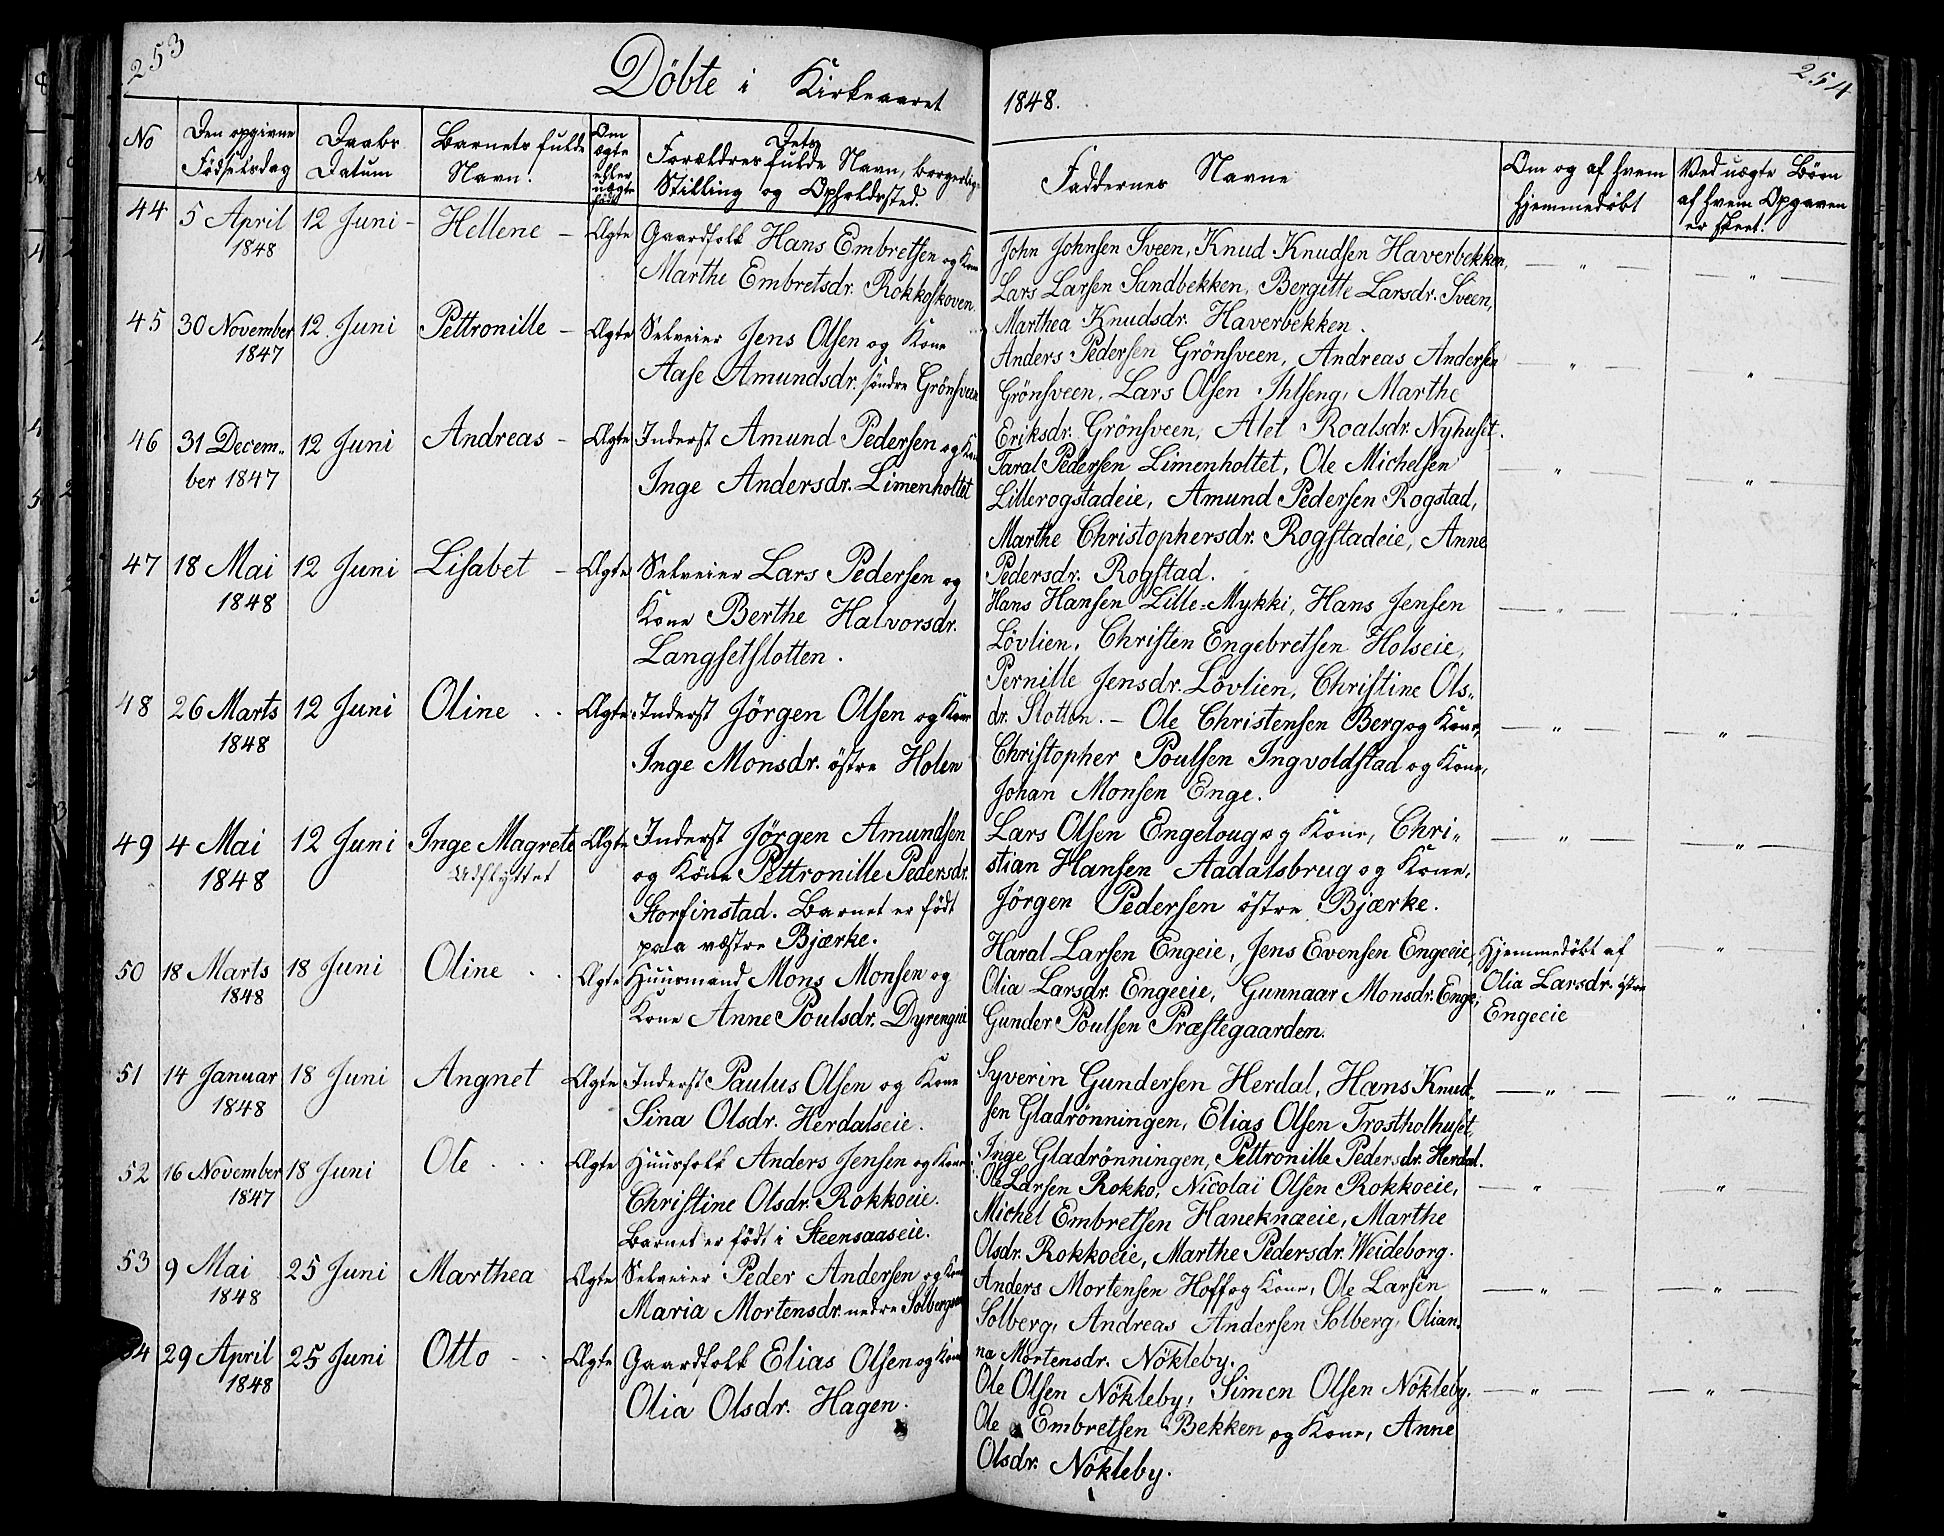 253
Döbte i Kirkeaaret
1848.
254
No
Den opgivne Fødselsdag
Daabs Datum
Barnets fulde Navn.
Om ægte eller uægte født
Dets Forældres fulde Navn, borgerlige Stilling og Opholdssted.
Faddernes Navne
Om og af hvem Hjemmedøbt
Ved uægte Børn af hvem Opgaven er skeet.
44 5 April 1848 12 Juni - Hellene - Ægte Gaardfolk Hans Embretsen og Kone
Marthe Embretsdr. Rokkoskoven
John Johnsen Sveen, Knud Knudsen Haverbekken,
Lars Larsen Sandbekken, Bergitte Larsdr. Sveen,
Marthea Knudsdr. Haverbekken.
45 30 November 1847 12 Juni Pettronille - Ægte Selveier Jens Olsen og Kone
Aase Amundsdr. søndre Grönsveen
Anders Pedersen Grönsveen, Andreas Andersen
Grönsveen, Lars Olsen Ihlseng, Marthe
Eriksdr. Grönsveen, Alet Roalsdr. Nyhuset.
46 31 Decem-ber 1847 12 Juni Andreas - Ægte Inderst Amund Pedersen og Kone
Inge Andersdr. Limenholtet
Taral Pedersen Limenholtet, Ole Michelsen
Lillerogstadeie, Amund Pedersen Rogstad,
Marthe Christophersdr. Rogstadeie, Anne
Pedersdr. Rogstad.
47 18 Mai 1848 12 Juni Lisabet - Ægte Selveier Lars Pedersen og
Kone Berthe Halvorsdr.
Langsetslotten.
Hans Hansen Lille-Mykki, Hans Jensen
Lövlien, Christen Engebretsen Holseie,
Pernille Jensdr. Lövlien, Christine Ols-
dr. Slotten. - Ole Christensen Berg og Kone,
48 26 Marts 1848 12 Juni Oline . . Ægte Inderst Jörgen Olsen og Kone
Inge Monsdr. östre Holen
Christopher Poulsen Ingvoldstad og Kone,
Johan Monsen Enge.
49 4 Mai 1848 12 Juni Inge Magrete Ægte Inderst Jörgen Amundsen
Udflyttet
og Kone Pettronille Pedersdr.
Storfinstad. Barnet er födt
paa væstre Bjærke.
Lars Olsen Engeloug og Kone, Chri-
stian Hansen Aadalsbrug og Kone,
Jörgen Pedersen östre Bjærke.
50 18 Marts 1848 18 Juni Oline . . Ægte Huusmand Mons Monsen og
Kone Anne Poulsdr. Dyrengeie
Haral Larsen Engeie, Jens Evensen Engeeie,
Olia Larsdr. Engeeie, Gunnaar Monsdr. Enge,
Gunder Poulsen Præstegaarden.
Hjemmedöbt af
Olia Larsdr. östre
Engeeie
51 14 Januar 1848 18 Juni Angnet Ægte Inderst Paulus Olsen og Kone
Sina Olsdr. Herdalseie.
Syverin Gundersen Herdal, Hans Knud-
sen Gladrönningen, Elias Olsen Trostholhuset,
Inge Gladrönningen, Pettronille Pedersdr. Herdal.
52 16 November 1847 18 Juni Ole . . . Ægte Huusfolk Anders Jensen og Kone
Christine Olsdr. Rokkoeie.
Barnet er födt i Steensaaseie.
Ole Larsen Rokko, Nicolaï Olsen Rokkoeie,
Michel Embretsen Haneknæeie, Marthe
Olsdr. Rokkoeie, Marthe Pedersdr. Weideborg.
53 9 Mai 1848 25 Juni Marthea Ægte Selveier Peder Andersen og Kone
Maria Mortensdr. nedre Solbergseie
Anders Mortensen Hoff og Kone, Ole Larsen
Solberg, Andreas Andersen Solberg, Olian-
na Mortensdr. Nökleby.
54 29 April 1848 25 Juni Otto - . Ægte Gaardfolk Elias Olsen og Kone
Olia Olsdr. Hagen.
Ole Olsen Nökleby, Simen Olsen Nökleby,
Ole Embretsen Bekken og Kone, Anne
Olsdr. Nökleby.